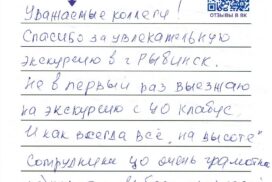 ОТЗЫВЫ В ЯК
Уважаемые коллеги!
Спасибо за увлекательную
экскурсию в г Рыбинск.
Не в первый раз выезжаю
на экскурсию с ЦО Клабус,
И как всегда всё, на высоте"
Сотрудники ЦО очень грамотно